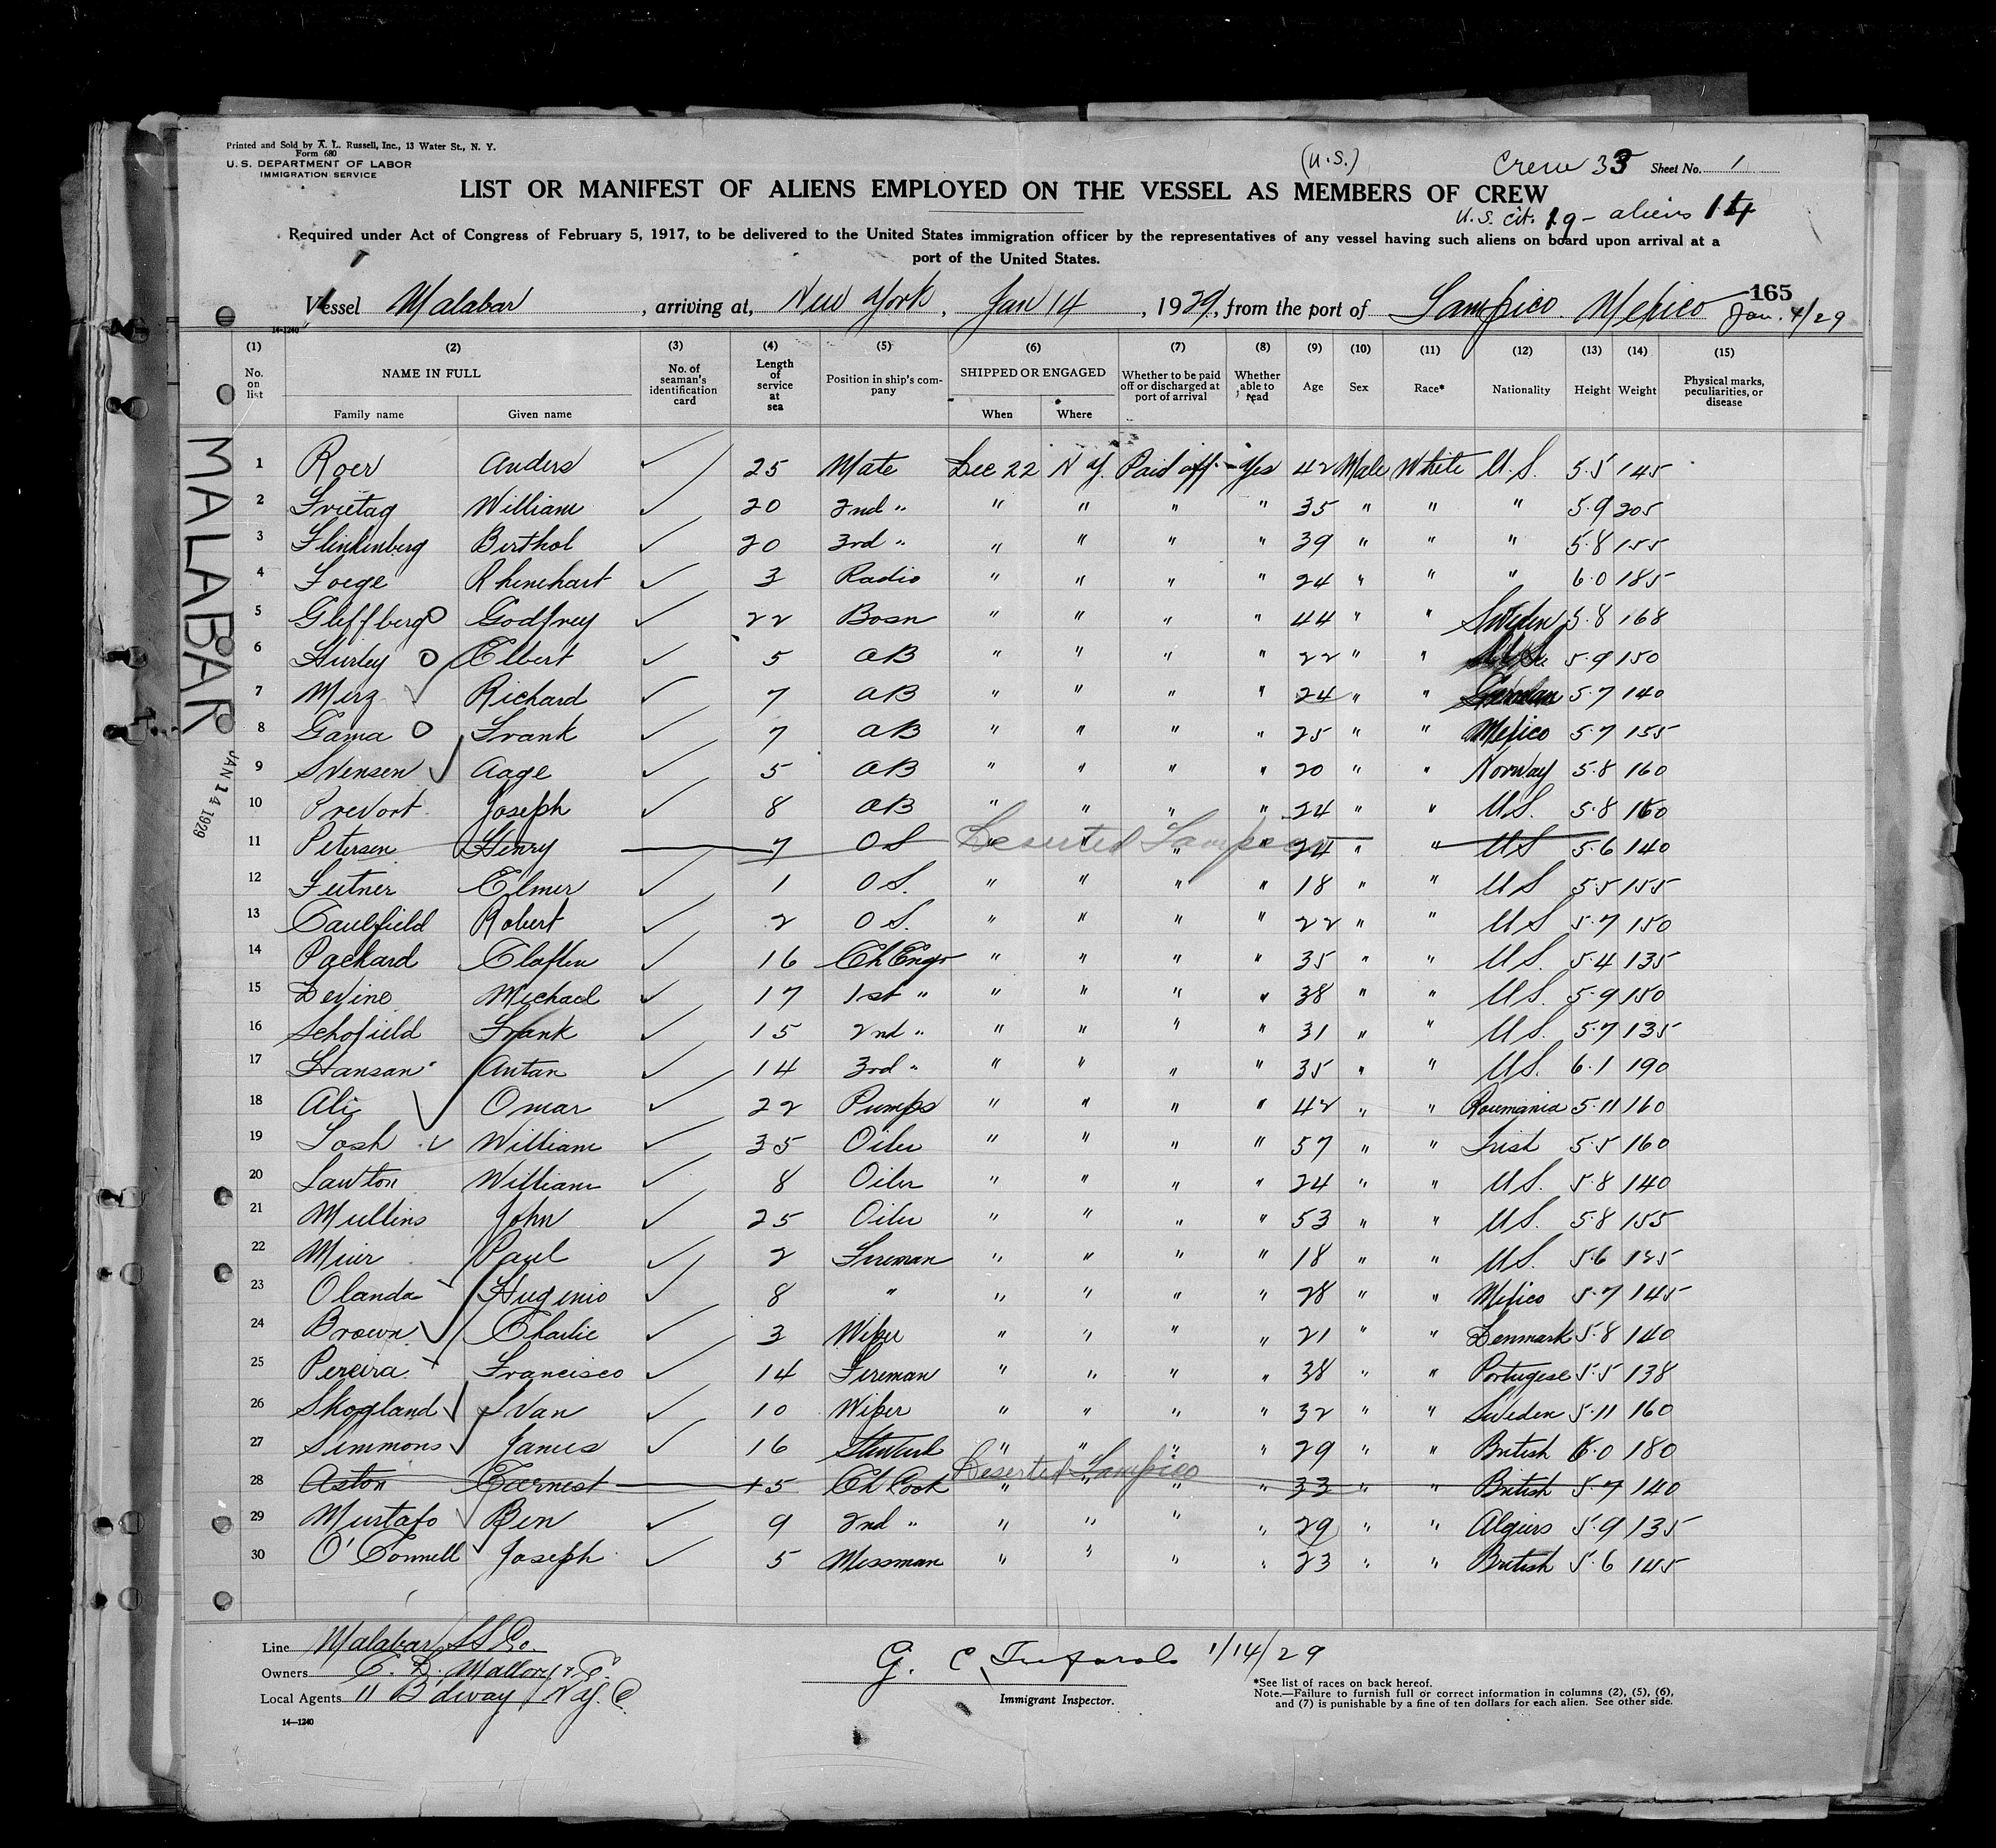 Printed and Sold by A. L. Russell, Inc., 13 Water St., N. Y.
Form 680
U. S. DEPARTMENT OF LABOR
IMMIGRATION SERVICE
(U.S.)
Crew 33 Sheet No. 1
LIST OR MANIFEST OF ALIENS EMPLOYED ON THE VESSEL AS MEMBERS OF CREW
U.S. cit. 19 - aliens 14
Required under Act of Congress of February 5, 1917, to be delivered to the United States immigration officer by the representatives of any vessel having such aliens on board upon arrival at a
port of the United States.
165
Vessel Malabar, arriving at, New York, Jan 14, 1929, from the port of Tampico Mexico Jan. 4/29
14-1240
(1) (2) (3) (4) (5) (6) (7) (8) (9) (10) (11) (12) (13) (14) (15)
No. on list NAME IN FULL Family name Given name No. of seaman's identification card Length of service at sea Position in ship's company SHIPPED OR ENGAGED When Where Whether to be paid off or discharged at port of arrival Whether able to read Age Sex Race* Nationality Height Weight Physical marks, peculiarities, or disease
MALABAR
JAN 14 1929
1 Roer Anders 25 Mate Dec 22 N Y. Paid off Yes 42 Male White U.S. 5.5 145
2 Frietag William 20 2nd " " " " " 35 " " " 5.9 205
3 Flinkenberg Berthol 20 3rd " " " " " 39 " " " 5.8 155
4 Foege Rhinehart 3 Radio " " " " 24 " " " 6.0 185
5 Gleffberg Godfrey 22 Bosn " " " " 44 " " Sweden 5.8 168
6 Hurley Elbert 5 AB " " " " 22 " " 5.9 150
7 Merz Richard 7 AB " " " " 24 " " 5.7 140
8 Gama Frank 7 AB " " " " 25 " " Mexico 5.7 155
9 Svensen Aage 5 AB " " " " 20 " " Norway 5.8 160
10 Prevort Joseph 8 AB " " " " 24 " " U.S. 5.8 160
11 Petersen Henry 7 OS Deserted Tampico " " " " 24 " " US 5.6 140
12 Feutner Elmer 1 O S. " " " " 18 " " US 5.5 155
13 Caulfield Robert 2 O S. " " " " 22 " " US 5.7 150
14 Packard Claflin 16 Ch Engr " " " " 35 " " U.S. 5.4 135
15 Devine Michael 17 1st " " " " " 38 " " U.S. 5.9 150
16 Schofield Frank 15 2nd " " " " " 31 " " U.S. 5.7 135
17 Hansan Antan 14 3rd " " " " " 35 " " U.S. 6.1 190
18 Ali Omar 22 Pumps " " " " 42 " " Roumania 5.11 160
19 Tosh William 35 Oiler " " " " 57 " " Irish 5.5 160
20 Lawton William 8 Oiler " " " " 24 " " U.S. 5.8 140
21 Mullins John 25 Oiler " " " " 53 " " U.S. 5.8 155
22 Muir Paul 2 Fireman " " " " 18 " " U.S. 5.6 125
23 Olanda Hugenio 8 " " " " " 28 " " Mexico 5.7 145
24 Brown Charlie 3 Wiper " " " " 21 " " Denmark 5.8 140
25 Pereira Francisco 14 Fireman " " " " 38 " " Portugese 5.5 138
26 Skogland Ivan 10 Wiper " " " " 32 " " Sweden 5.11 160
27 Simmons James 16 Steward " " " " 29 " " British 6.0 180
28 Aston Earnest 15 Ch Cook Deserted Tampico " " " " 33 " " British 5.7 140
29 Mustafo Ben 9 2nd " " " " " 29 " " Algiers 5.9 135
30 O'Connell Joseph 5 Messman " " " " 23 " " British 5.6 145
Line Malabar SS Co.
Owners C. D. Mallory & Co.
Local Agents 11 B'dway N.Y. C.
14-1240
G. C. 1/14/29
Immigrant Inspector.
*See list of races on back hereof.
Note.—Failure to furnish full or correct information in columns (2), (5), (6),
and (7) is punishable by a fine of ten dollars for each alien. See other side.